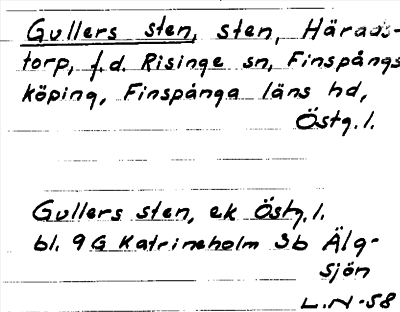 Gullers sten, sten, Härads-
torp, f.d. Risinge sn, Finspångs
köping, Finspånga läns hd,
Östg.l.
Gullers sten, ek Östg.l.
bl. 9G Katrineholm 3b Älg-
sjön
L.N-58